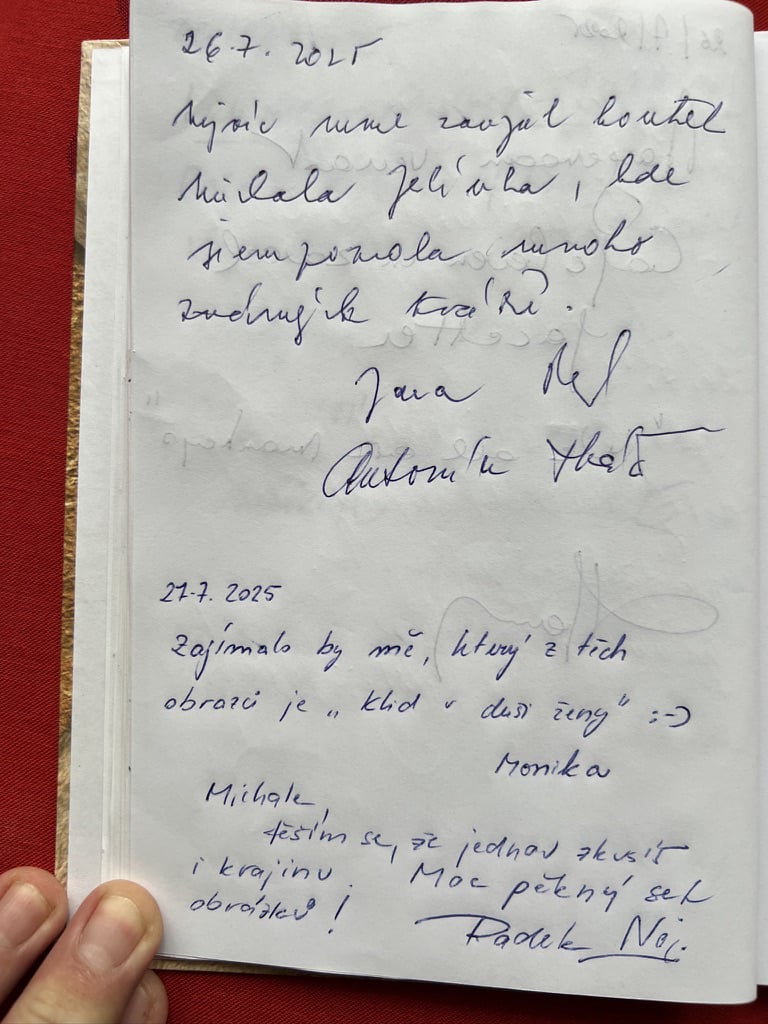 26.7. 2025
Nejvíc mne zaujal koutek
Michala Jelínka, kde
jsem poznala mnoho
zdejších tváří.
Jana
Antonín
27.7. 2025
Zajímalo by mě, který z těch
obrazů je „Klid v duši ženy" :-)
Monika
Michale,
těším se, že jednou zkusíš
i krajinu. Moc pěkný set
obrázků!
Radek